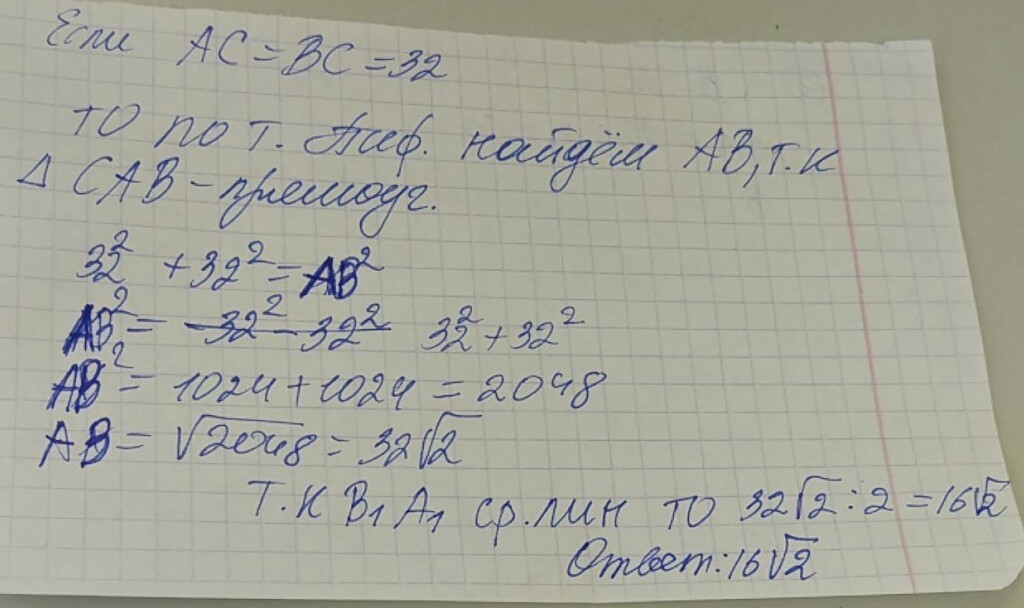 Если AC = BC = 32
то по т. Пиф. найдём AB, т.к
Δ CAB – прямоуг.
32² + 32² = AB²
AB² = -32² - 32² 32² + 32²
AB² = 1024 + 1024 = 2048
AB = √2048 = 32√2
Т.К B₁A₁ ср. лин то 32√2 : 2 = 16√2
Ответ: 16√2